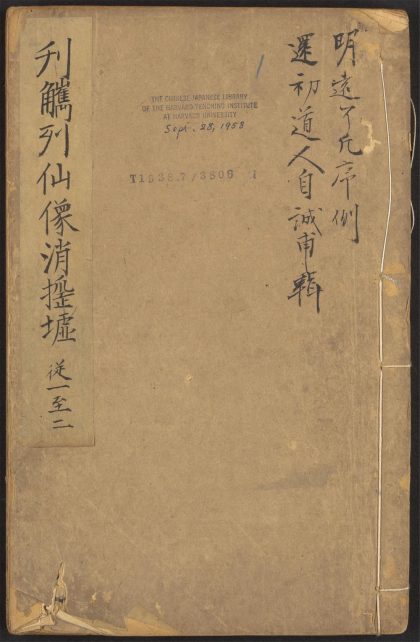 明袁了凡序例
還初道人自誠甫輯
THE CHINESE-JAPANESE LIBRARY
OF THE HARVARD-YENCHING INSTITUTE
AT HARVARD UNIVERSITY
Sept. 28, 1958
1
刋
列仙像消搖墟 從一至二